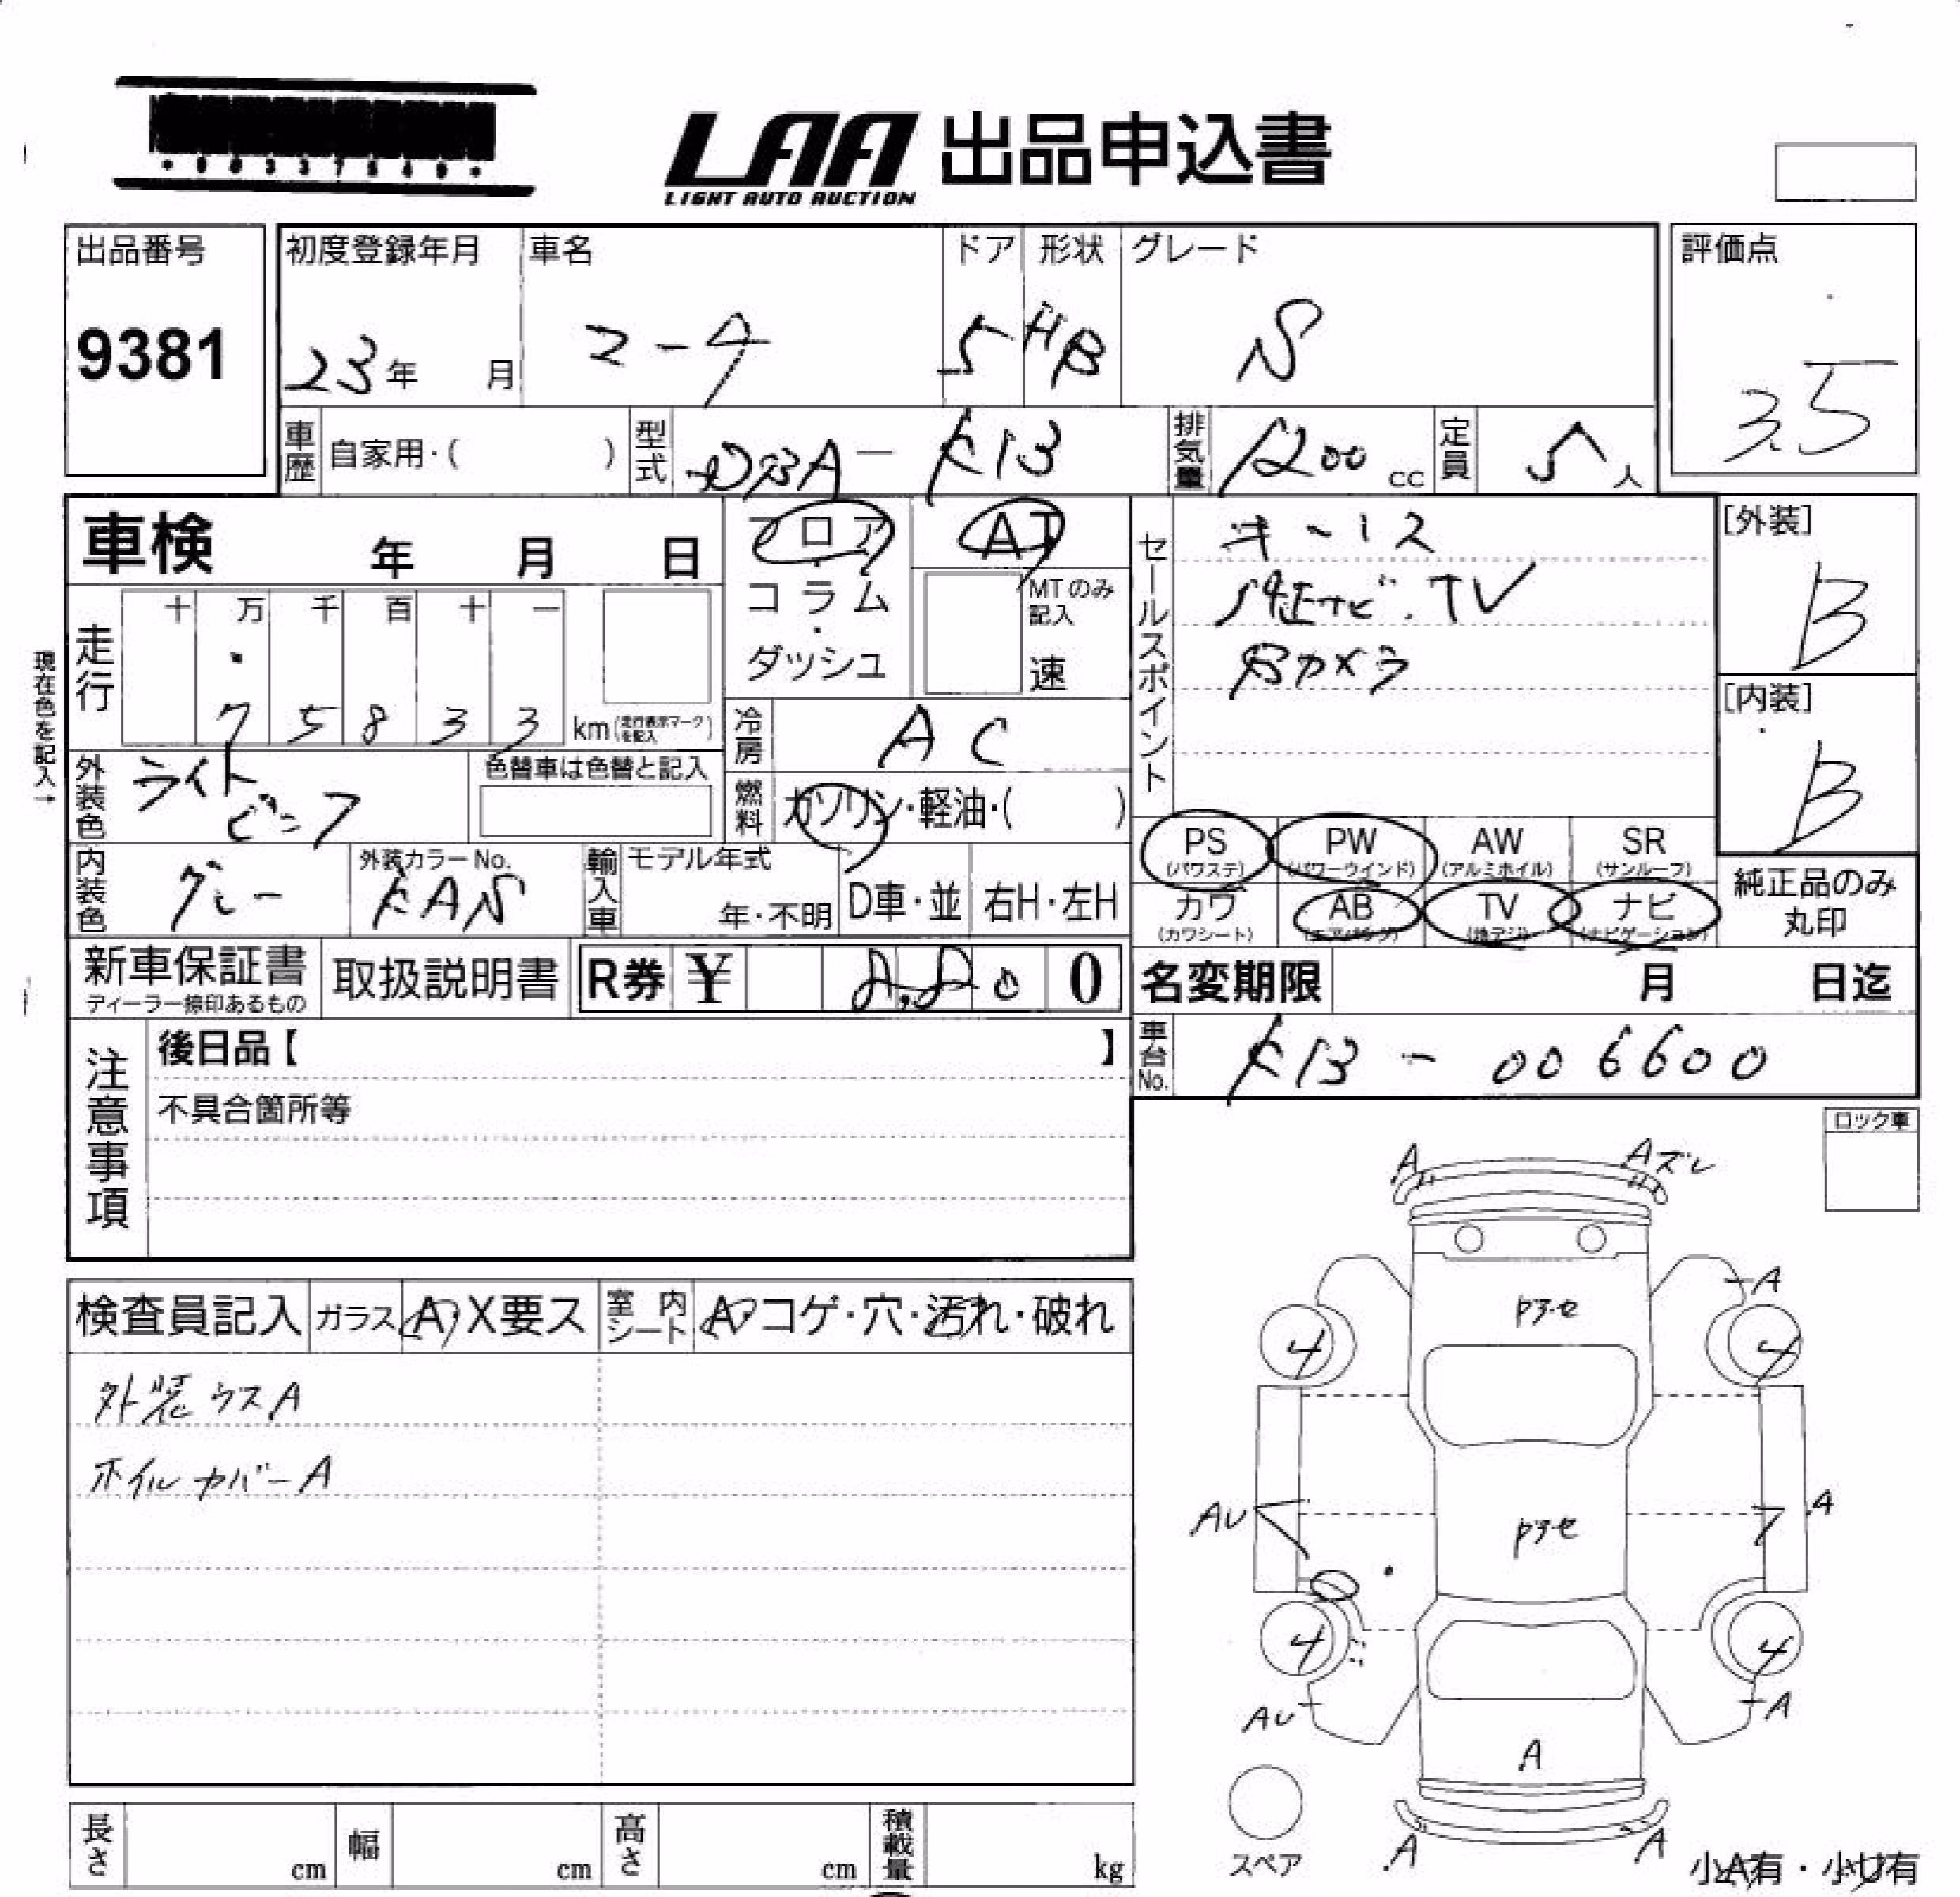 LAA 出品申込書
LIGHT AUTO AUCTION
出品番号
9381
初度登録年月
23年 月
車名
マーチ
ドア
5
形状
HB
グレード
S
評価点
3.5
車歴 自家用・( )
型式 DBA-K13
排気量 1200 cc
定員 5人
車検 年 月 日
フロア
コラム
・
ダッシュ
AT
MTのみ
記入
速
セールスポイント
キーレス
純正ナビ.TV
Bカメラ
[外装]
B
[内装]
B
現在色を記入→
走行
十 万 千 百 十 一
7 5 8 3 3 km (走行表示マークを記入)
冷房 AC
燃料 ガソリン・軽油・( )
外装色 ライト
ピンク
色替車は色替と記入
内装色 グレー
外装カラーNo.
KAN
輸入車 モデル年式
年・不明
D車・並
右H・左H
PS
(パワステ)
PW
(パワーウインド)
AW
(アルミホイル)
SR
(サンルーフ)
カワ
(カワシート)
AB
(エアバック)
TV
(地デジ)
ナビ
(ナビゲーション)
純正品のみ
丸印
新車保証書
ディーラー捺印あるもの
取扱説明書
R券 ¥ 0
名変期限 月 日迄
車台No. K13-006600
注意事項
後日品【 】
不具合箇所等
ロック車
検査員記入
ガラス A X要ス
室内シート A コゲ・穴・汚れ・破れ
外装ウスA
ホイルカバーA
A
Aズレ
A
4
4
AU
A
4
4
AU
A
A
A
A
スペア
小A有・小U有
長さ cm
幅 cm
高さ cm
積載量 kg